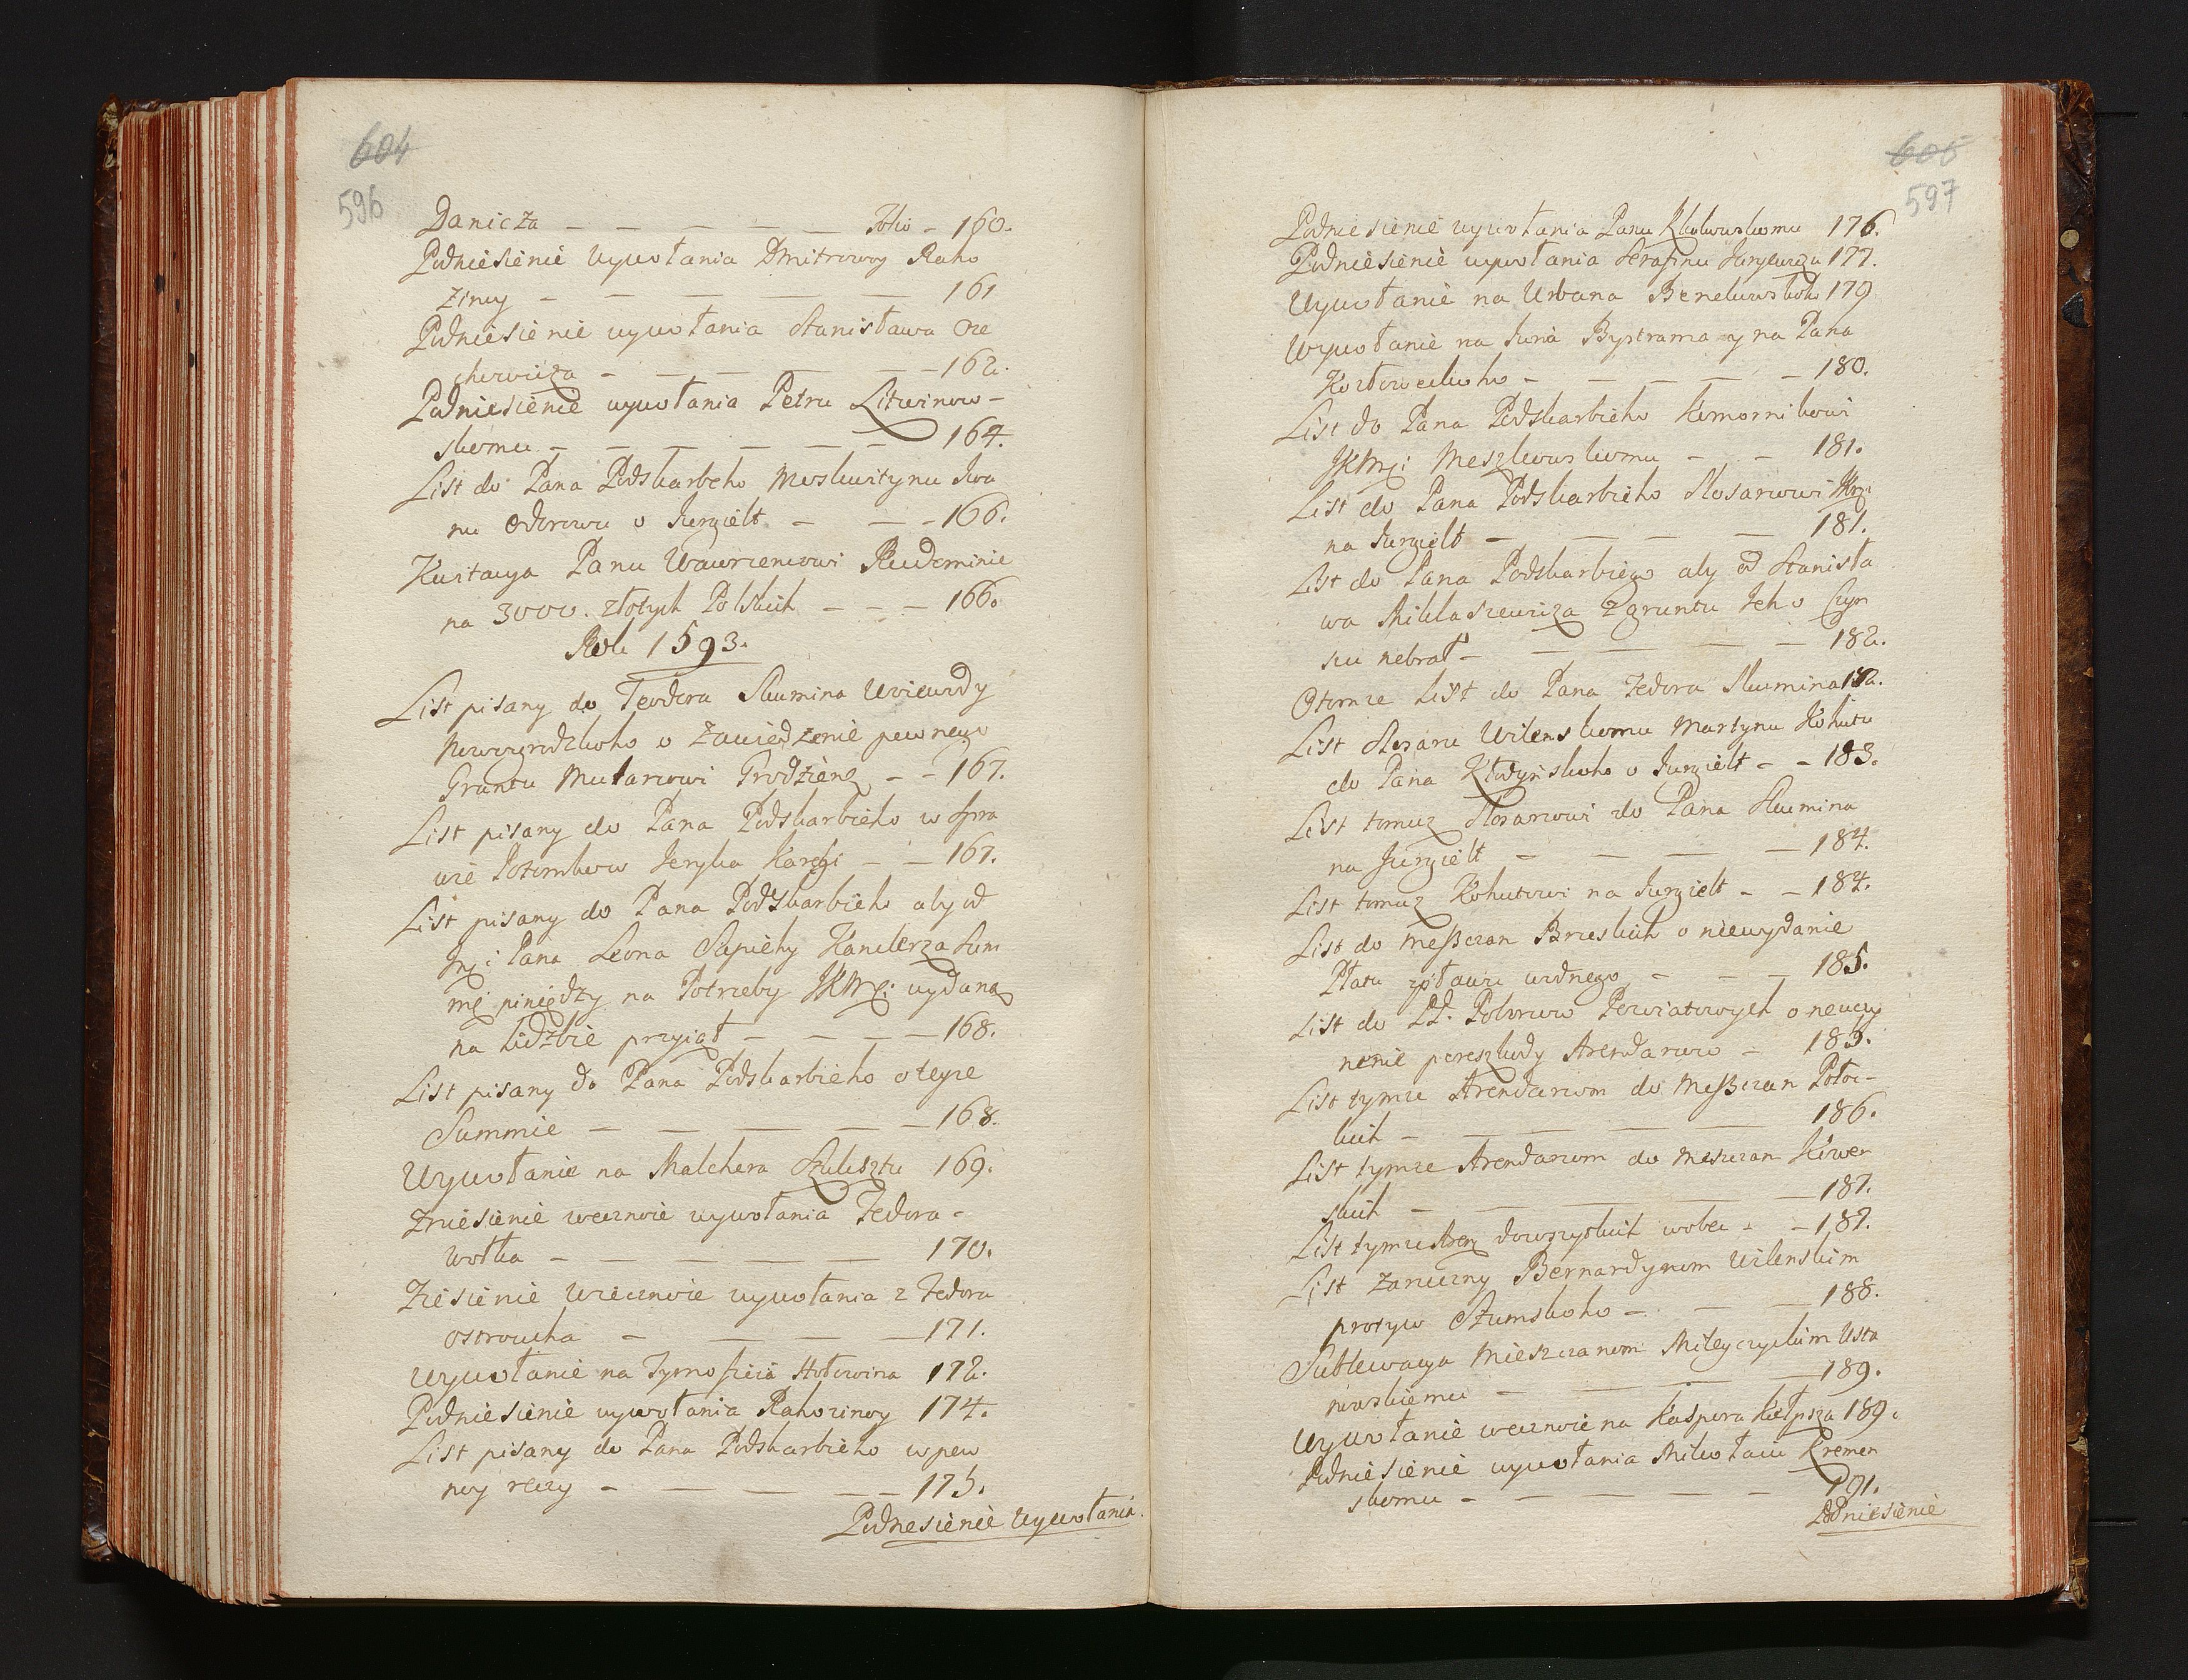 604
596
Danicza — — — — — Folio — 160.
Podniesienie wywołania Dmitrowoy Raho
zincy — — — — — 161
Podniesienie wywołania Stanisława Ore
chowicza — — — — — 162.
Podniesienie wywołania Petru Litwinow-
skomu — — — — — 164.
List do Pana Podskarbeho Moskwitynu Iwa
nu Odorowu o Jurgielt — — — 166.
Kwitacya Panu Wawrzencowi Rudominie
na 3000. złotych Polskich — — — 166.
Rok 1593.
List pisany do Teodora Skumina Woiewody
Nowogrodzkoho o zawiedzenie pewnego
Gruntu Mularowi Grodzieng — — 167.
List pisany do Pana Podskarbieho w spra
wie Potomkow Jeryka Karegi — — 167.
List pisany do Pana Podskarbieho aby od
Jmci Pana Leona Sapiehy Kanclerza sum
mę piniędzy na Potrzeby JKMci wydaną
na lidzbie przyiął — — — — 168.
List pisany do Pana Podskarbieho oteyże
Summie — — — — — 168.
Wywołanie na Malchera Szulisztu 169.
Zniesienie wecznoie wywołania Fedora -
wołka — — — — — 170.
Ziesienie wiecznoie wywołania z Fedora
Ostroucha — — — — 171.
Wywołanie na Tymofieia Hołowina 172.
Podniesienie wywołania Rahozincy 174.
List pisany do Pana Podskarbieho w pew
noy reczy — — — — — 175.
Podnesienie Wywołania.
605
597
Podniesienie wywołania Panu Kłukowskomu 176.
Podniesienie wywołania Serafinu Juryewiczu 177.
Wywołanie na Urbana Benekowskoho 179
Wywołanie na Juria Bystrama y na Pana
Kozłoweckoho — — — — — 180.
List do Pana Podskarbieho Komornikowi
JKMci Meszkowskomu — — 181.
List do Pana Podskarbieho Slosarowi JKMci
na Jurgielt — — — — 181.
List do Pana Podskarbiego aby od Stanisła
wa Mikłaszewicza z gruntu Jeho Czyn
szu nebrał — — — — — 182.
Otomze List do Pana Fedora Skumina 182.
List Slosaru Wilenskomu Martynu Kohutu
do Pana Kłodyńskoho o Jurgielt — — 183.
List tomuz Slosarowi do Pana Skumina
na Jurgielt — — — — 184.
List tomuz Kohutowi na Jurgielt — — 184.
List do Meßczan Brzeskich o niewydanie
Płatu spławu wodnego — — — 185.
List do PP. Poborców Powiatowych o neuczy
nenie pereszkody Arendarów — 185.
List tymze Arendarom do Meßczan Połoc-
kich — — — — — 186.
List tymze Arendarom do Meszczan Kiwen
skich — — — — — 187.
List tymze Aren dowszystkich wobec — — 187.
List zaruczny Bernardynom Wilenskim
protyw Szumskoho — — — 188.
Sublewacya Mieszczanom Mileyczyckim Usta
nowskiemu — — — — 189.
Wywołanie wecznoie na Kaspora Kiełpsza 189.
Podniesienie wywołania Mikołaiu Kremen
skomu — — — — — 191.
Podniesienie